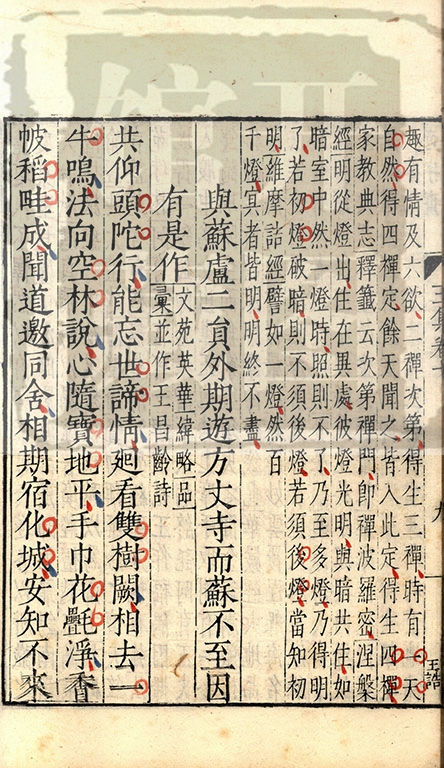 趣有情及六欲二禪次第得生三禪時有一天
自然得四禪定餘天聞之皆入此定得生四禪
家教典志釋籤云次第禪門即禪波羅密涅槃
經明從燈出住在異處彼燈光明與暗共住如
暗室中然一燈時照則不了乃至多燈乃得明
了若初燈破暗則不須後燈若須後燈當知初
明維摩詰經譬如一燈然百
千燈冥者皆明明終不盡
與蘇盧二員外期遊方丈寺而蘇不至因
有是作
文苑英華緯略品
彙並作王昌齡詩
共仰頭陀行能忘世諦情廻看雙樹闕相去一
牛鳴法向空林說心隨寶地平手巾花氎淨香
帔稻畦成聞道邀同舍相期宿化城安知不來